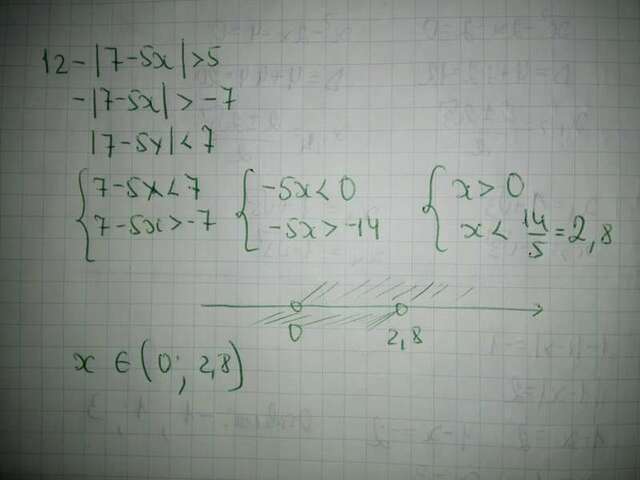 12 - |7 - 5x| > 5
- |7 - 5x| > -7
|7 - 5x| < 7
{ 7 - 5x < 7 { -5x < 0 { x > 0
{ 7 - 5x > -7 { -5x > -14 { x < 14/5 = 2,8
0 2,8
x ∈ (0; 2,8)